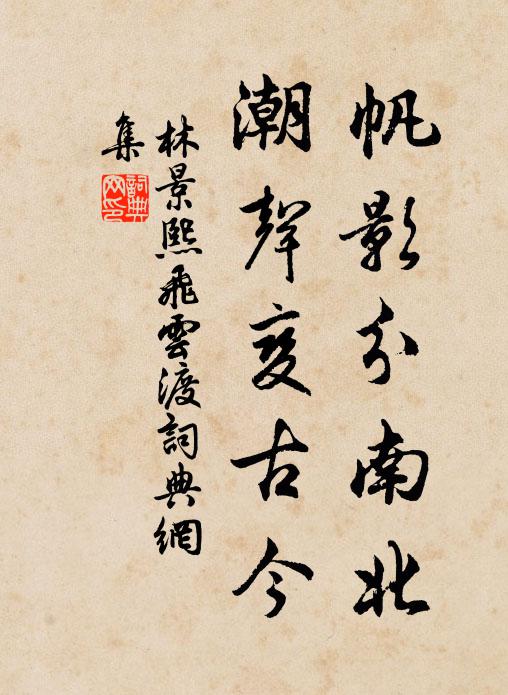 帆影分南北
潮聲变古今
林景熙飛雲渡詞典網
集
詞典
网印